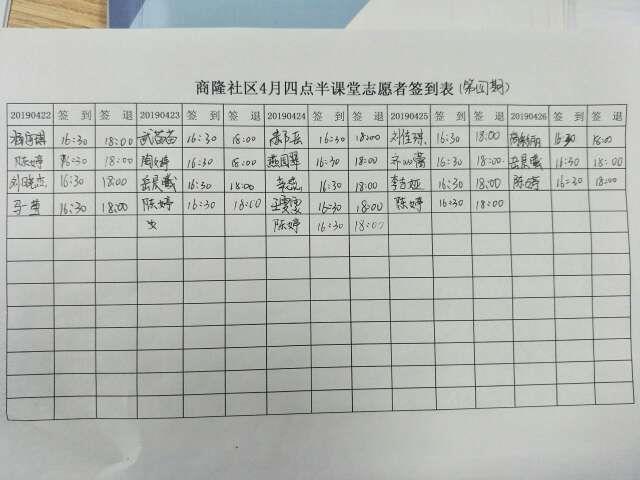 商隆社区4月四点半课堂志愿者签到表（第四期）
20190422 签到 签退 20190423 签到 签退 20190424 签到 签退 20190425 签到 签退 20190426 签到 签退
16:30 18:00 武苗苗 16:30 18:00 16:30 18:00 刘佳琪 16:30 18:00 16:30 18:00
陈婷 16:30 18:00 周婷 16:30 18:00 16:30 18:00 16:30 18:00 岳晨曦 16:30 18:00
刘晓杰 16:30 18:00 岳晨曦 16:30 18:00 16:30 18:00 16:30 18:00 陈婷 16:30 18:00
马莹 16:30 18:00 陈婷 16:30 18:00 16:30 18:00 陈婷 16:30 18:00
陈婷 16:30 18:00